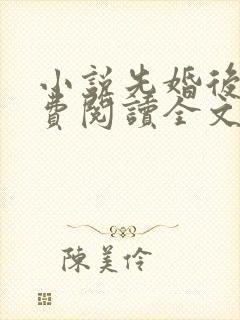 小說先婚後
費閱讀全文
陳美伶